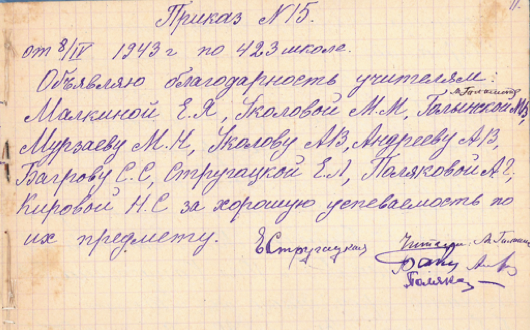 Приказ N 15.
от 8/IV 1943 г по 423 школе.
Объявляю благодарность учителям
Малкиной Е.Я, Уколовой М.М, Галынской
Мурзаеву М.Н, Уколову А.В, Андрееву А.В,
Багрову С.С, Стругацкой Е.Л, Поляковой А.Г,
Кировой Н.С за хорошую успеваемость по
их предмету.
ЕСтругацкая